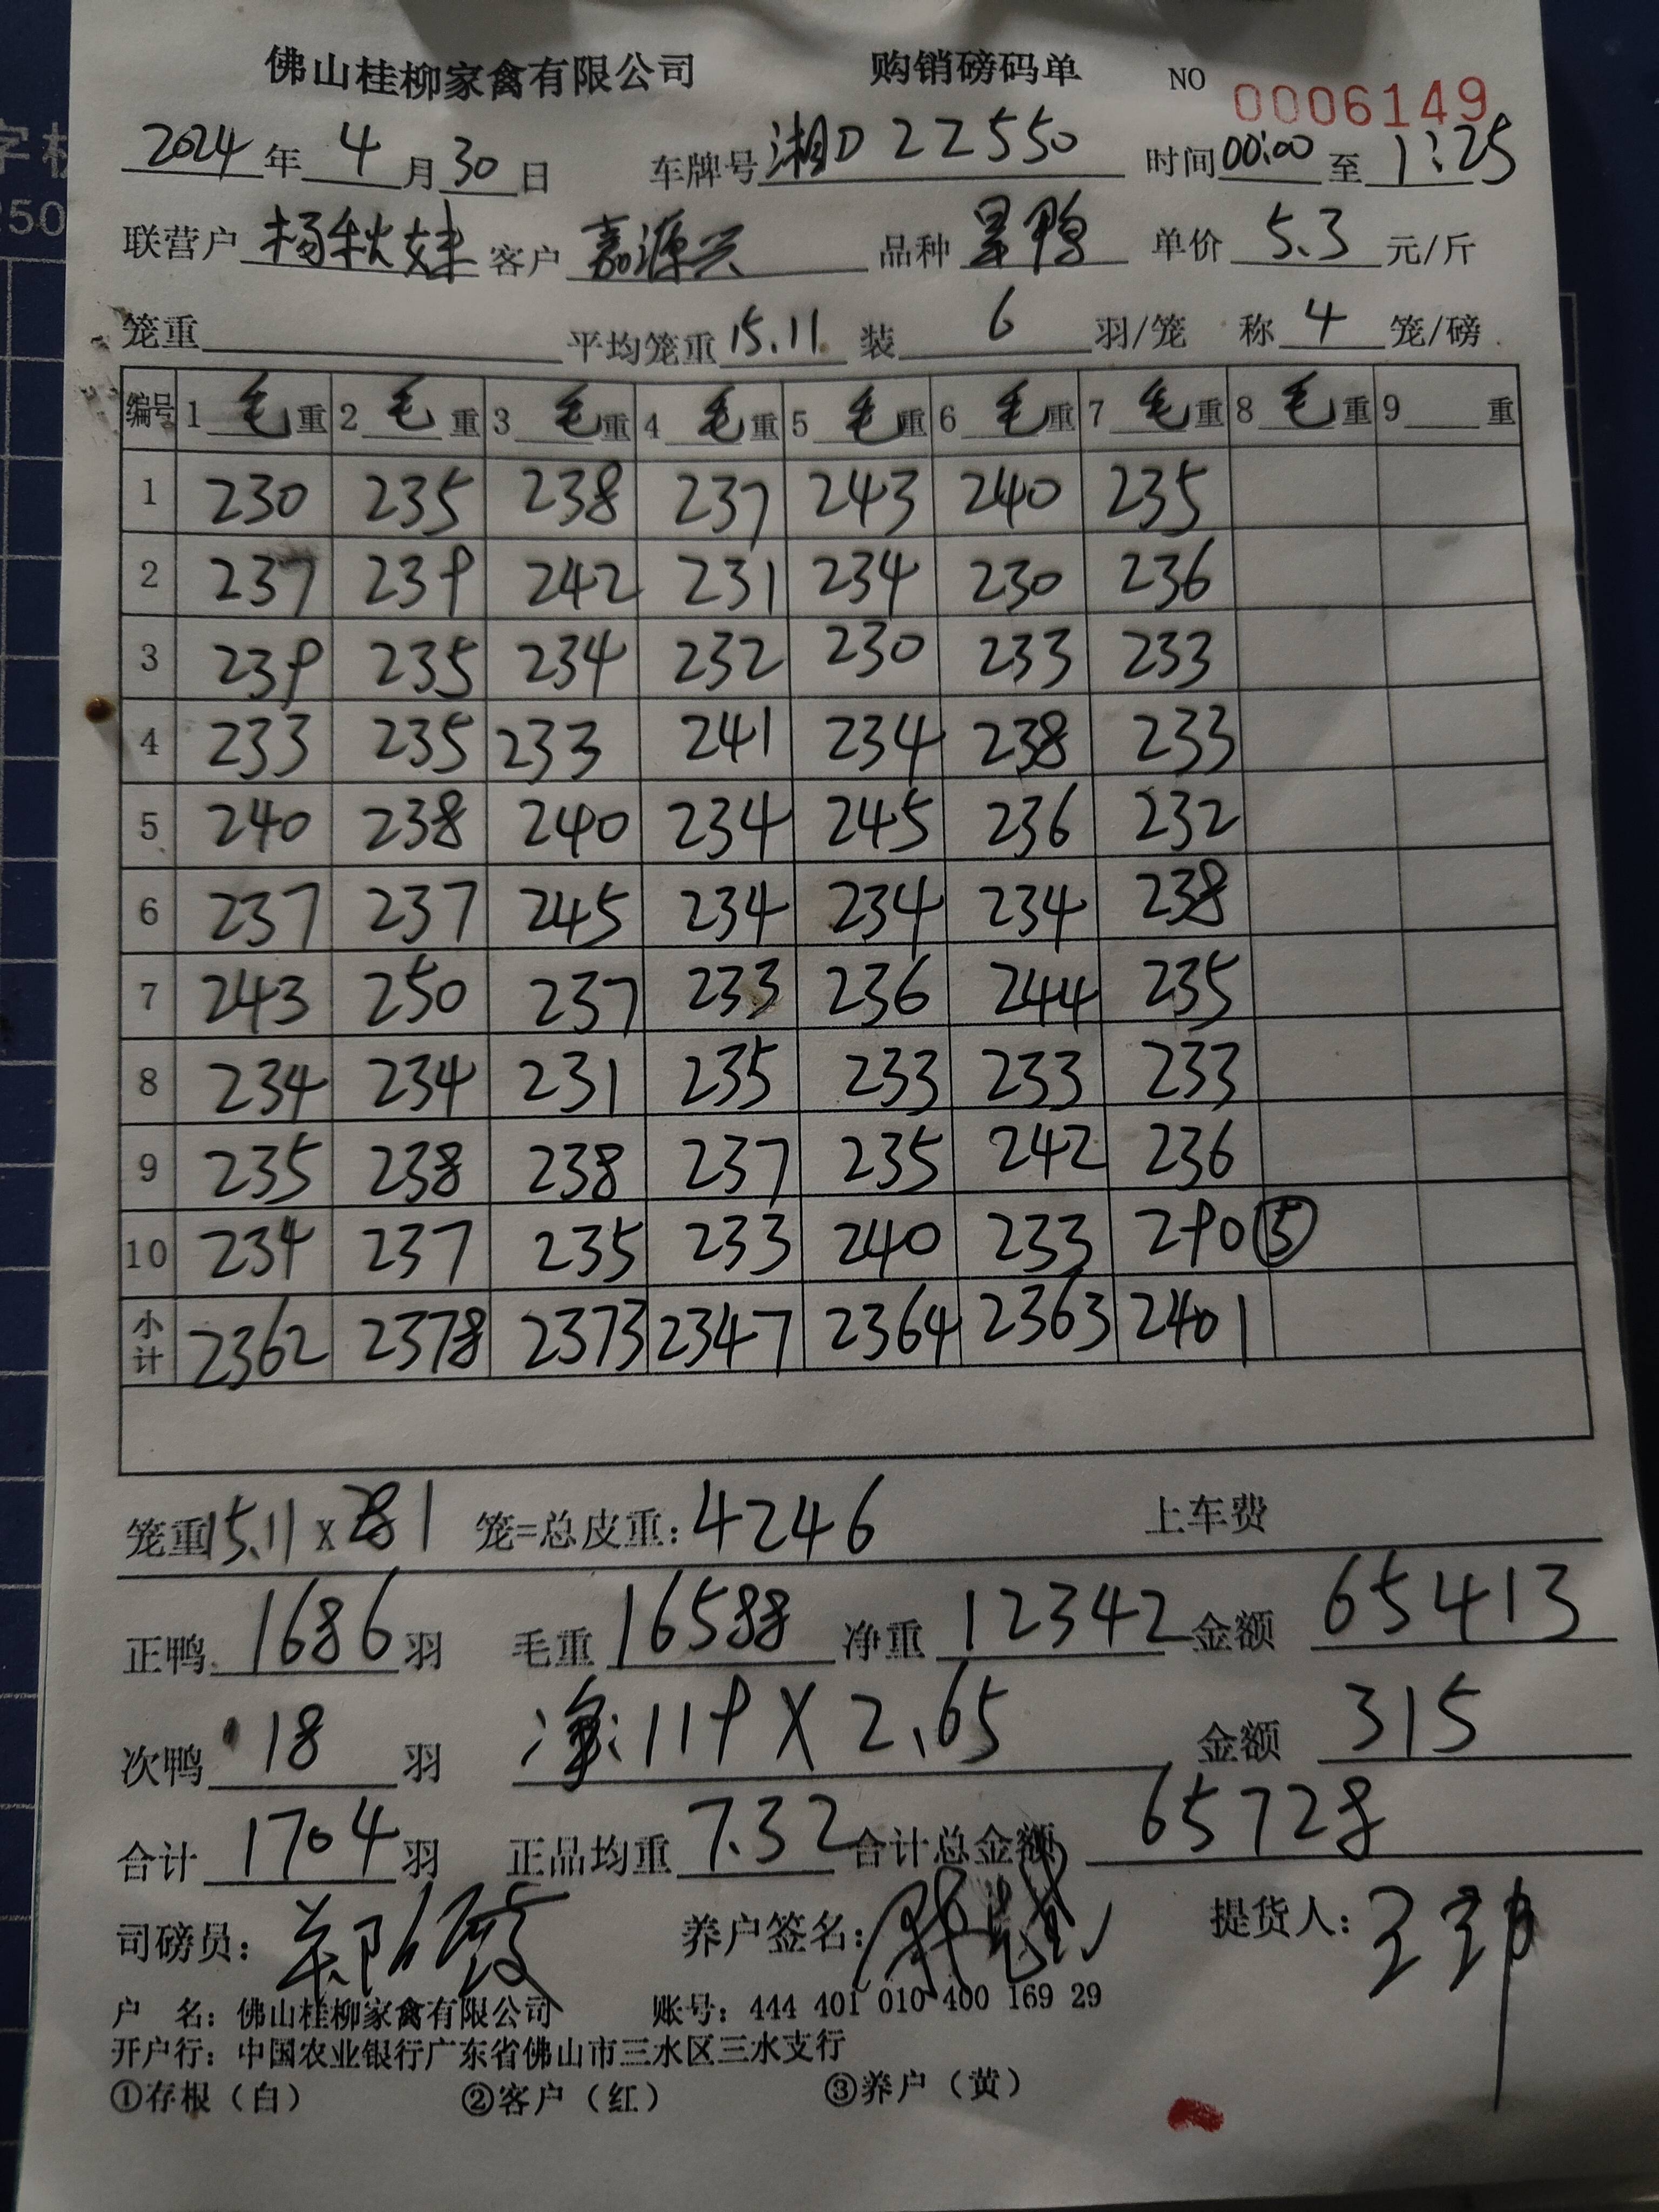 佛山桂柳家禽有限公司 购销磅码单 NO 0006149
2024年4月30日 车牌号湘D22550 时间00:00至1:25
联营户杨秋妹 客户嘉源兴 品种 鸭 单价5.3元/斤
笼重 平均笼重15.11 装6羽/笼 称4笼/磅
编号 1毛重 2毛重 3毛重 4毛重 5毛重 6毛重 7毛重 8毛重 9 重
1 230 235 238 237 243 240 235
2 237 239 242 231 234 230 236
3 239 235 234 232 230 233 233
4 233 235 233 241 234 238 233
5 240 238 240 234 245 236 232
6 237 237 245 234 234 234 238
7 243 250 237 233 236 244 235
8 234 234 231 235 233 233 233
9 235 238 238 237 235 242 236
10 234 237 235 233 240 233 290 ⑤
小计 2362 2378 2373 2347 2364 2363 2401
笼重15.11X281 笼=总皮重:4246 上车费
正鸭1686羽 毛重16588 净重12342 金额65413
次鸭18羽 净:119X2.65 金额315
合计1704羽 正品均重7.32 合计总金额65728
司磅员: 养户签名: 提货人:
户 名: 佛山桂柳家禽有限公司 账号: 444 401 010 400 169 29
开户行: 中国农业银行广东省佛山市三水区三水支行
①存根(白) ②客户(红) ③养户(黄)